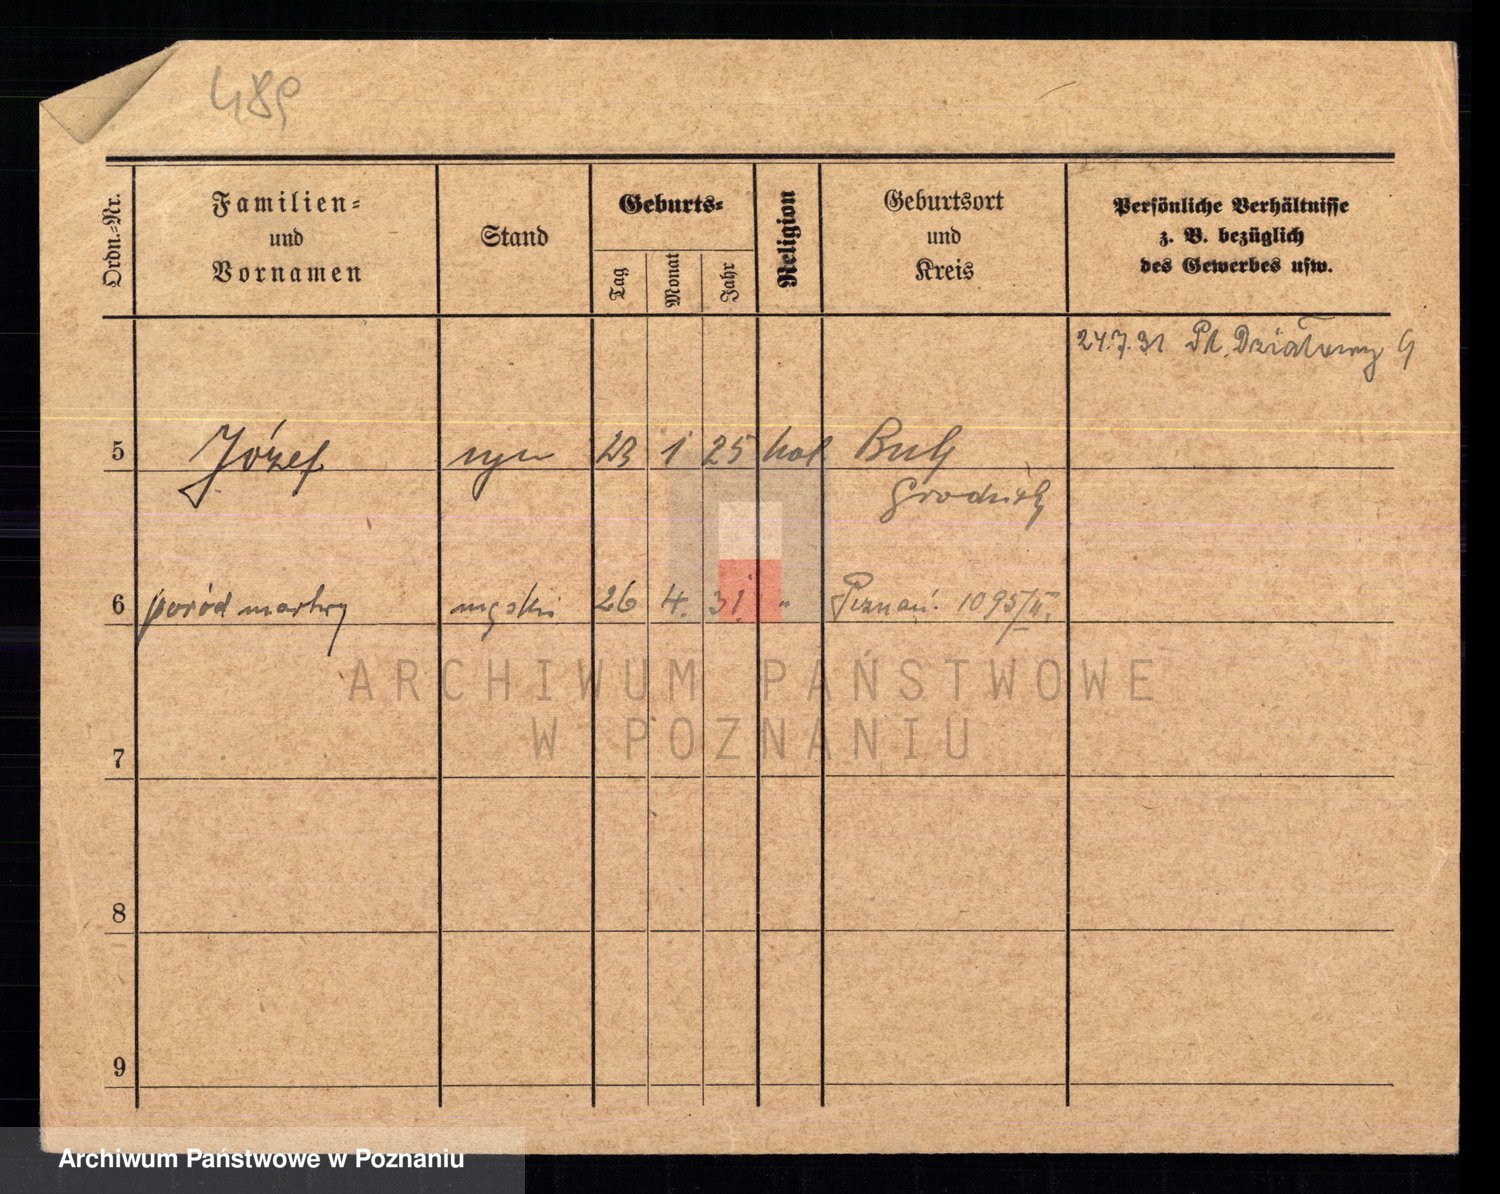 489
Ordn.-Nr.
Familien-
und
Vornamen
Stand
Geburts-
Tag
Monat
Jahr
Religion
Geburtsort
und
Kreis
Persönliche Verhältnisse
z. B. bezüglich
des Gewerbes usw.
24.7.31 Pl. Działowy 9
5 Józef syn 23 1 25 kat Buk
Grodzisk
6 poród martwy męski 26 4. 31. " Poznań. 1095/II.
ARCHIWUM PAŃSTWOWE
W POZNANIU
7
8
9
Archiwum Państwowe w Poznaniu